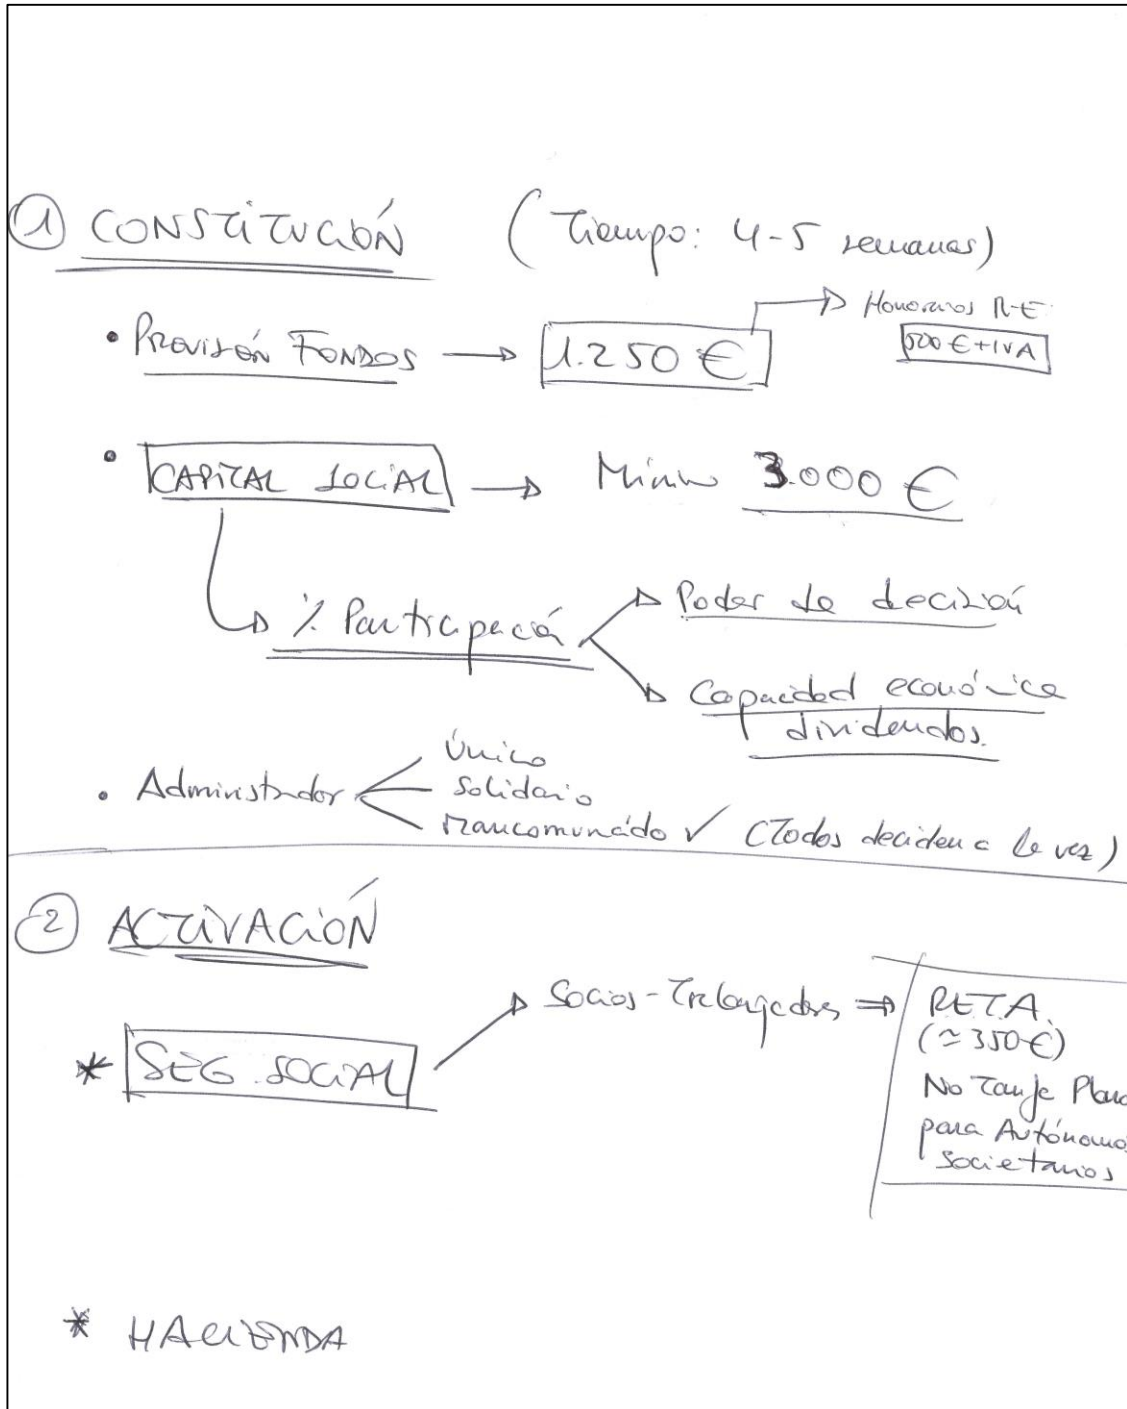 ① CONSTITUCIÓN (Tiempo: 4-5 semanas)
• PROVISIÓN FONDOS → 1.250 € → Honorarios R-E:
500 € + IVA
• CAPITAL SOCIAL → Mínimo 3.000 €
% Participación → Poder de decisión
→ Capacidad económica
dividendos.
• Administrador Único
Solidario
Mancomunado ✓ (Todos deciden a la vez)
② ACTIVACIÓN
* SEG. SOCIAL → Socios-Trabajadores ⇒ R.E.T.A.
(≃ 350 €)
No Tarifa Plana
para Autónomos
Societarios
* HACIENDA